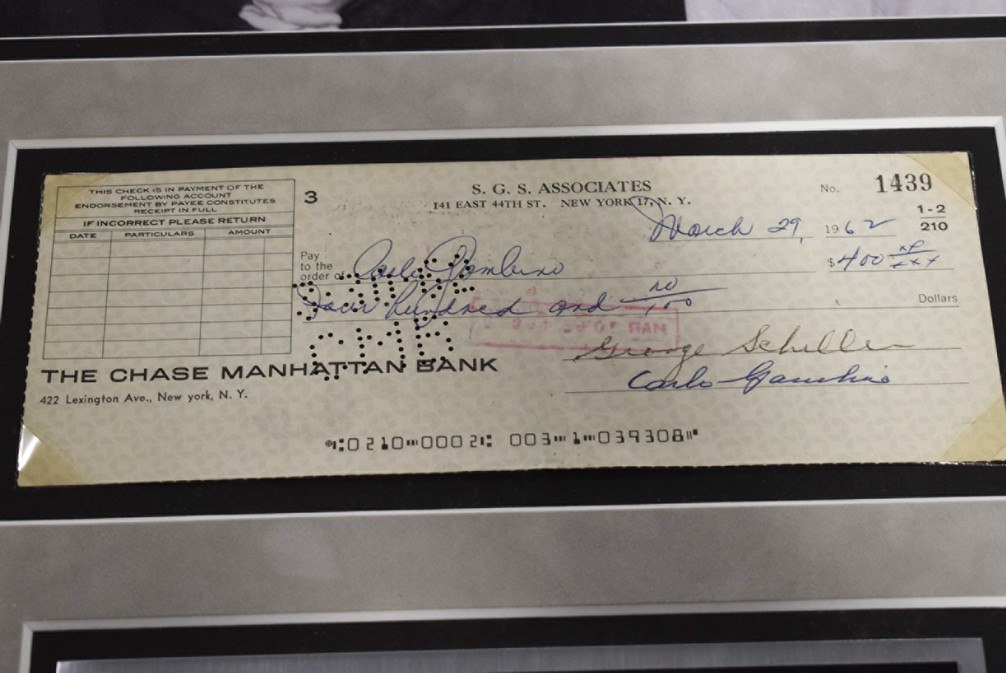 THIS CHECK IS IN PAYMENT OF THE
FOLLOWING ACCOUNT
ENDORSEMENT BY PAYEE CONSTITUTES
RECEIPT IN FULL
IF INCORRECT PLEASE RETURN
DATE PARTICULARS AMOUNT
3
S. G. S. ASSOCIATES
141 EAST 44TH ST. NEW YORK 17, N. Y.
No. 1439
March 29, 1962
1-2
210
Pay
to the
order of Carlo Gambino
$400
Four hundred and no/100 Dollars
CMB
George Schiller
Carlo Gambino
THE CHASE MANHATTAN BANK
422 Lexington Ave., New york, N. Y.
⑆0210⑉0002⑆ 003⑉1⑉039308⑈